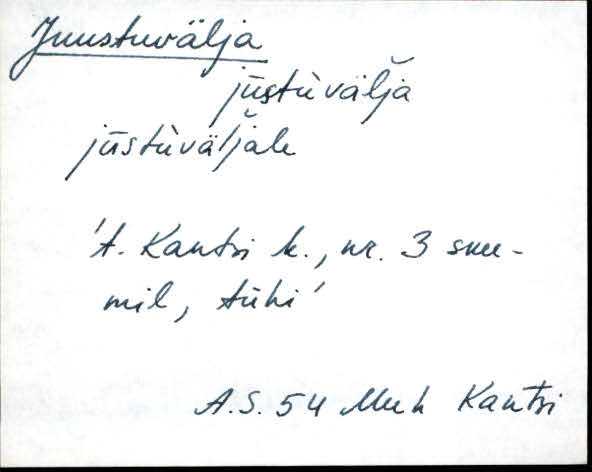 Juustuvälja
jūstùväľja
jūstùväľjale
't. Kantsi k., nr. 3 suu-
mil, tühi'
A.S. 54 Muh Kantsi